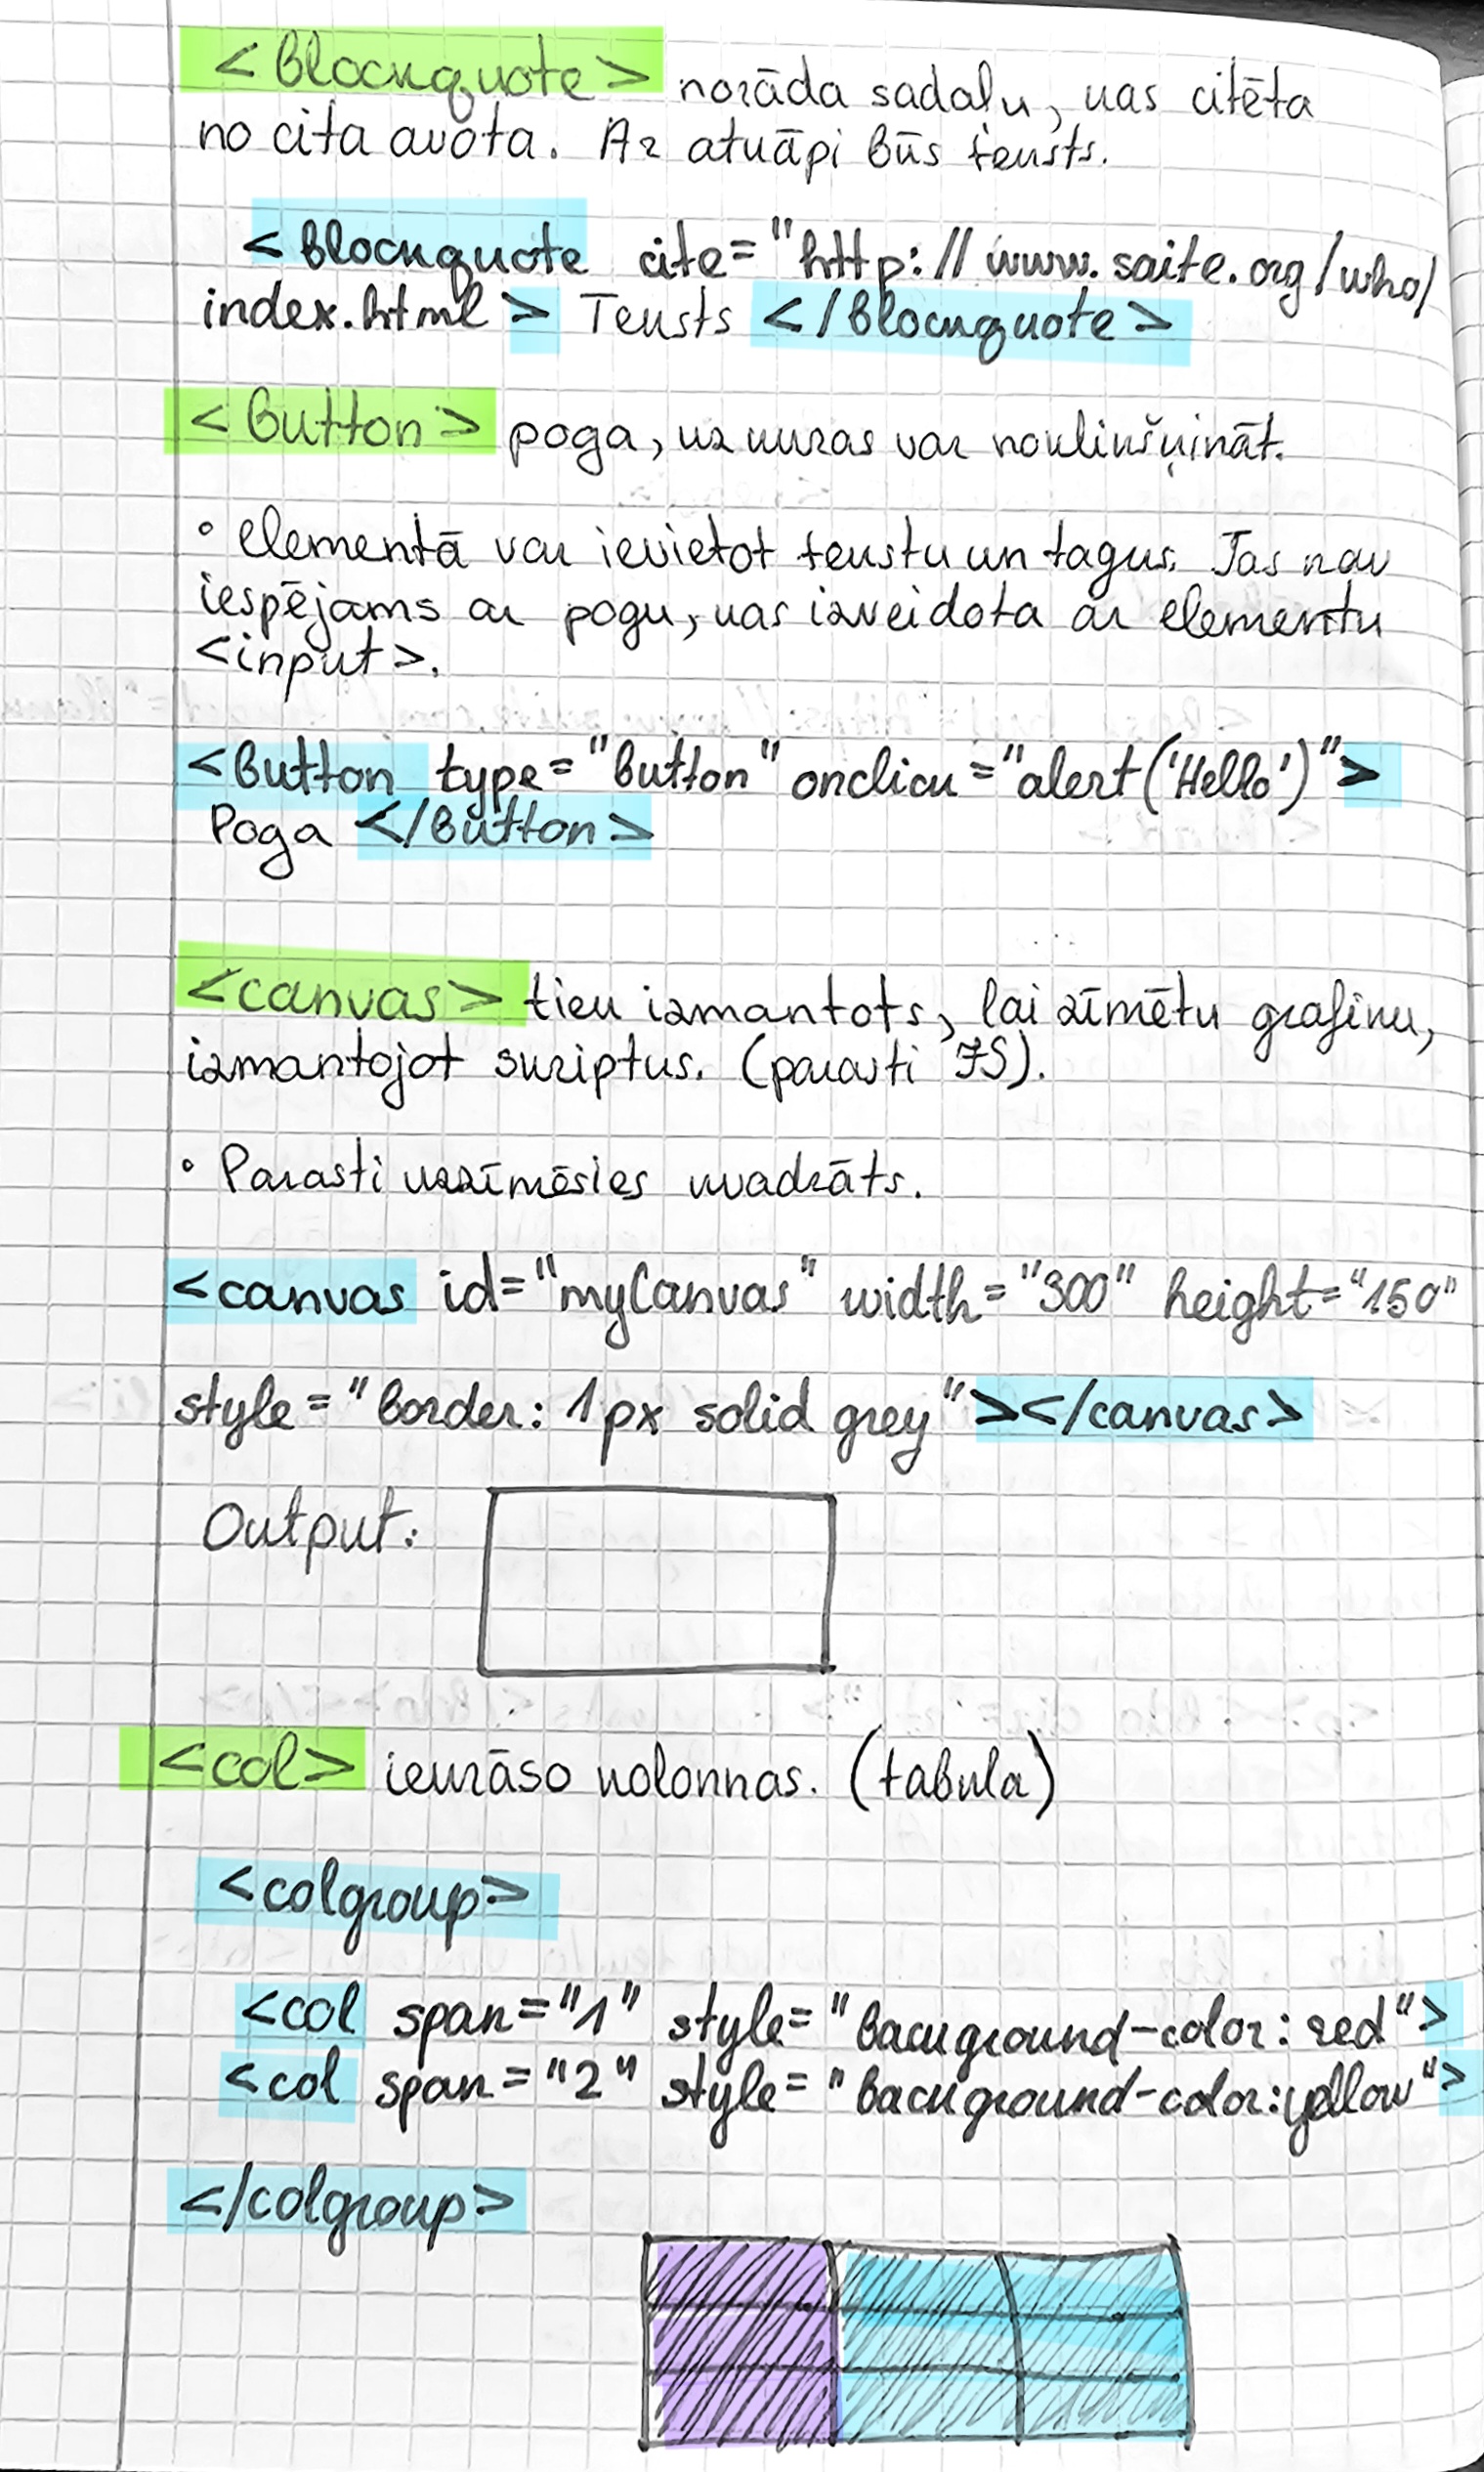 <blockquote> norāda sadaļu, kas citēta
no cita avota. Ar atkāpi būs teksts.
<blockquote cite="http://www.saite.org/who/
index.html> Teksts </blockquote>
<button> poga, uz kuras var noklikšķināt.
• elementā var ievietot tekstu un tagus. Tas nav
iespējams ar pogu, kas izveidota ar elementu
<input>.
<button type="button" onclick="alert('Hello')">
Poga </button>
<canvas> tiek izmantots, lai zīmētu grafiku,
izmantojot skriptus. (parasti JS).
• Parasti uzzīmēsies kvadrāts.
<canvas id="myCanvas" width="300" height="150"
style="border: 1px solid grey"></canvas>
Output:
<col> iekrāso kolonnas. (tabula)
<colgroup>
<col span="1" style="background-color: red">
<col span="2" style="background-color:yellow">
</colgroup>